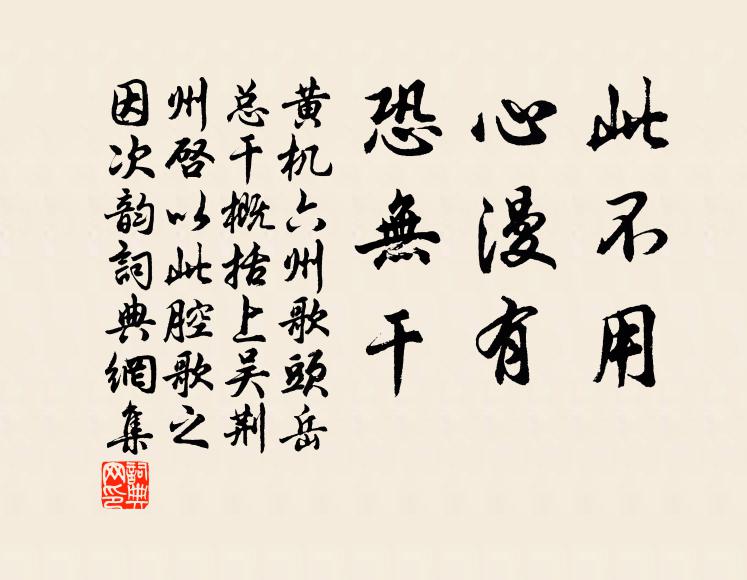 此不用
心漫有
恐無干
黄机六州歌頭岳
总干概括上吴荆
州啓以此腔歌之
因次韵詞典網集
詞典
网印